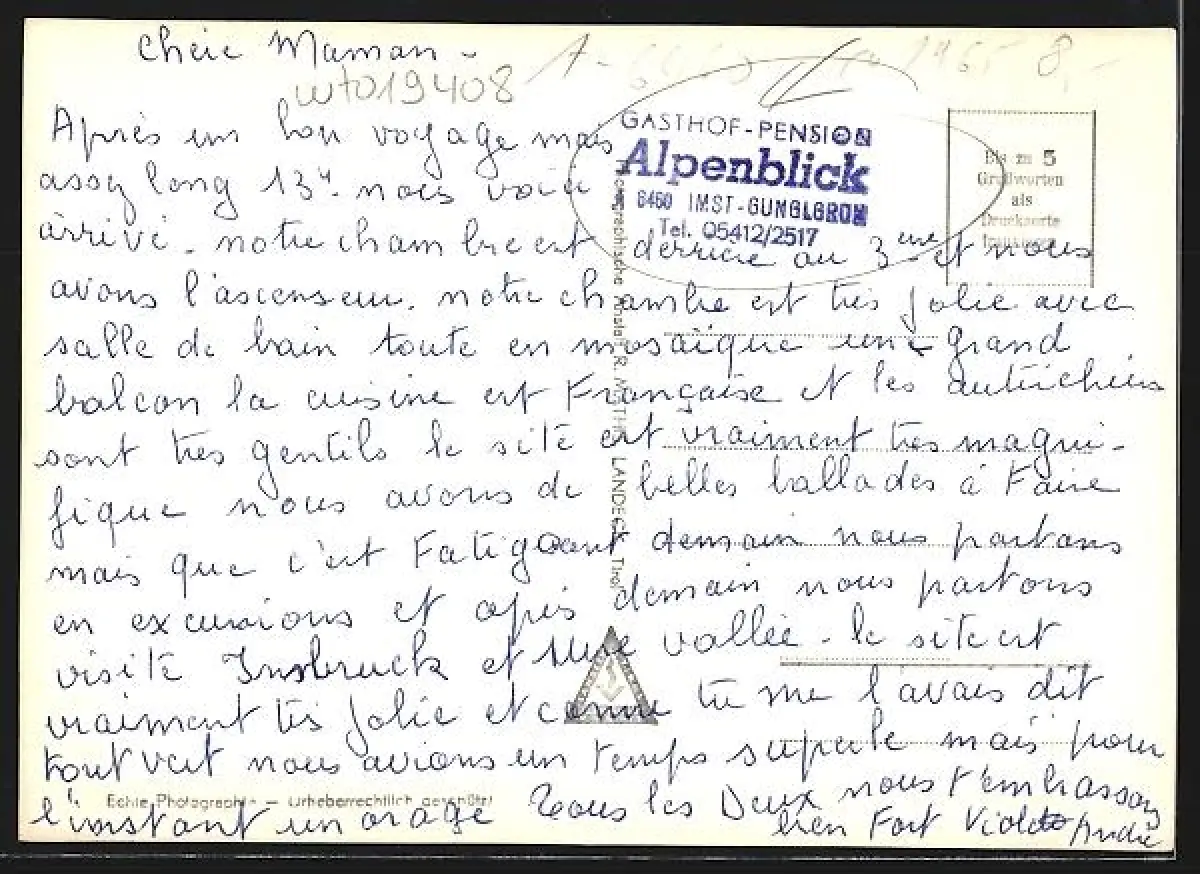 Cheie Maman -
wt019408
A- 1965 8,-
GASTHOF-PENSION
Alpenblick
6460 IMST-GUNGLGRÜN
Tel. 05412/2517
Bis zu 5
Grußworten
als
Drucksorte
Après un bon voyage mais
assez long 13h. nous voici
arrivé. notre chambre est derriere au 3eme et nous
avons l'ascenseur. notre chambre est très jolie avec
salle de bain toute en mosaïque une grand
balcon la cuisine est Française et les autrichiens
sont tres gentils le site est vraiment tres magni-
fique nous avons de belles ballades à Faire
mais que c'est Fatigant demain nous partons
en excursions et après demain nous partons
visité Innsbruck et une vallée - le site est
vraiment tès jolie et comme tu me l'avais dit
tout vert nous avions un temps superbe mais pour
l'instant un orage Tous les Deux nous t'embrassons
bien Fort Violette André
LANDECK, Tirol
Echte Photographie - Urheberrechtlich geschützt